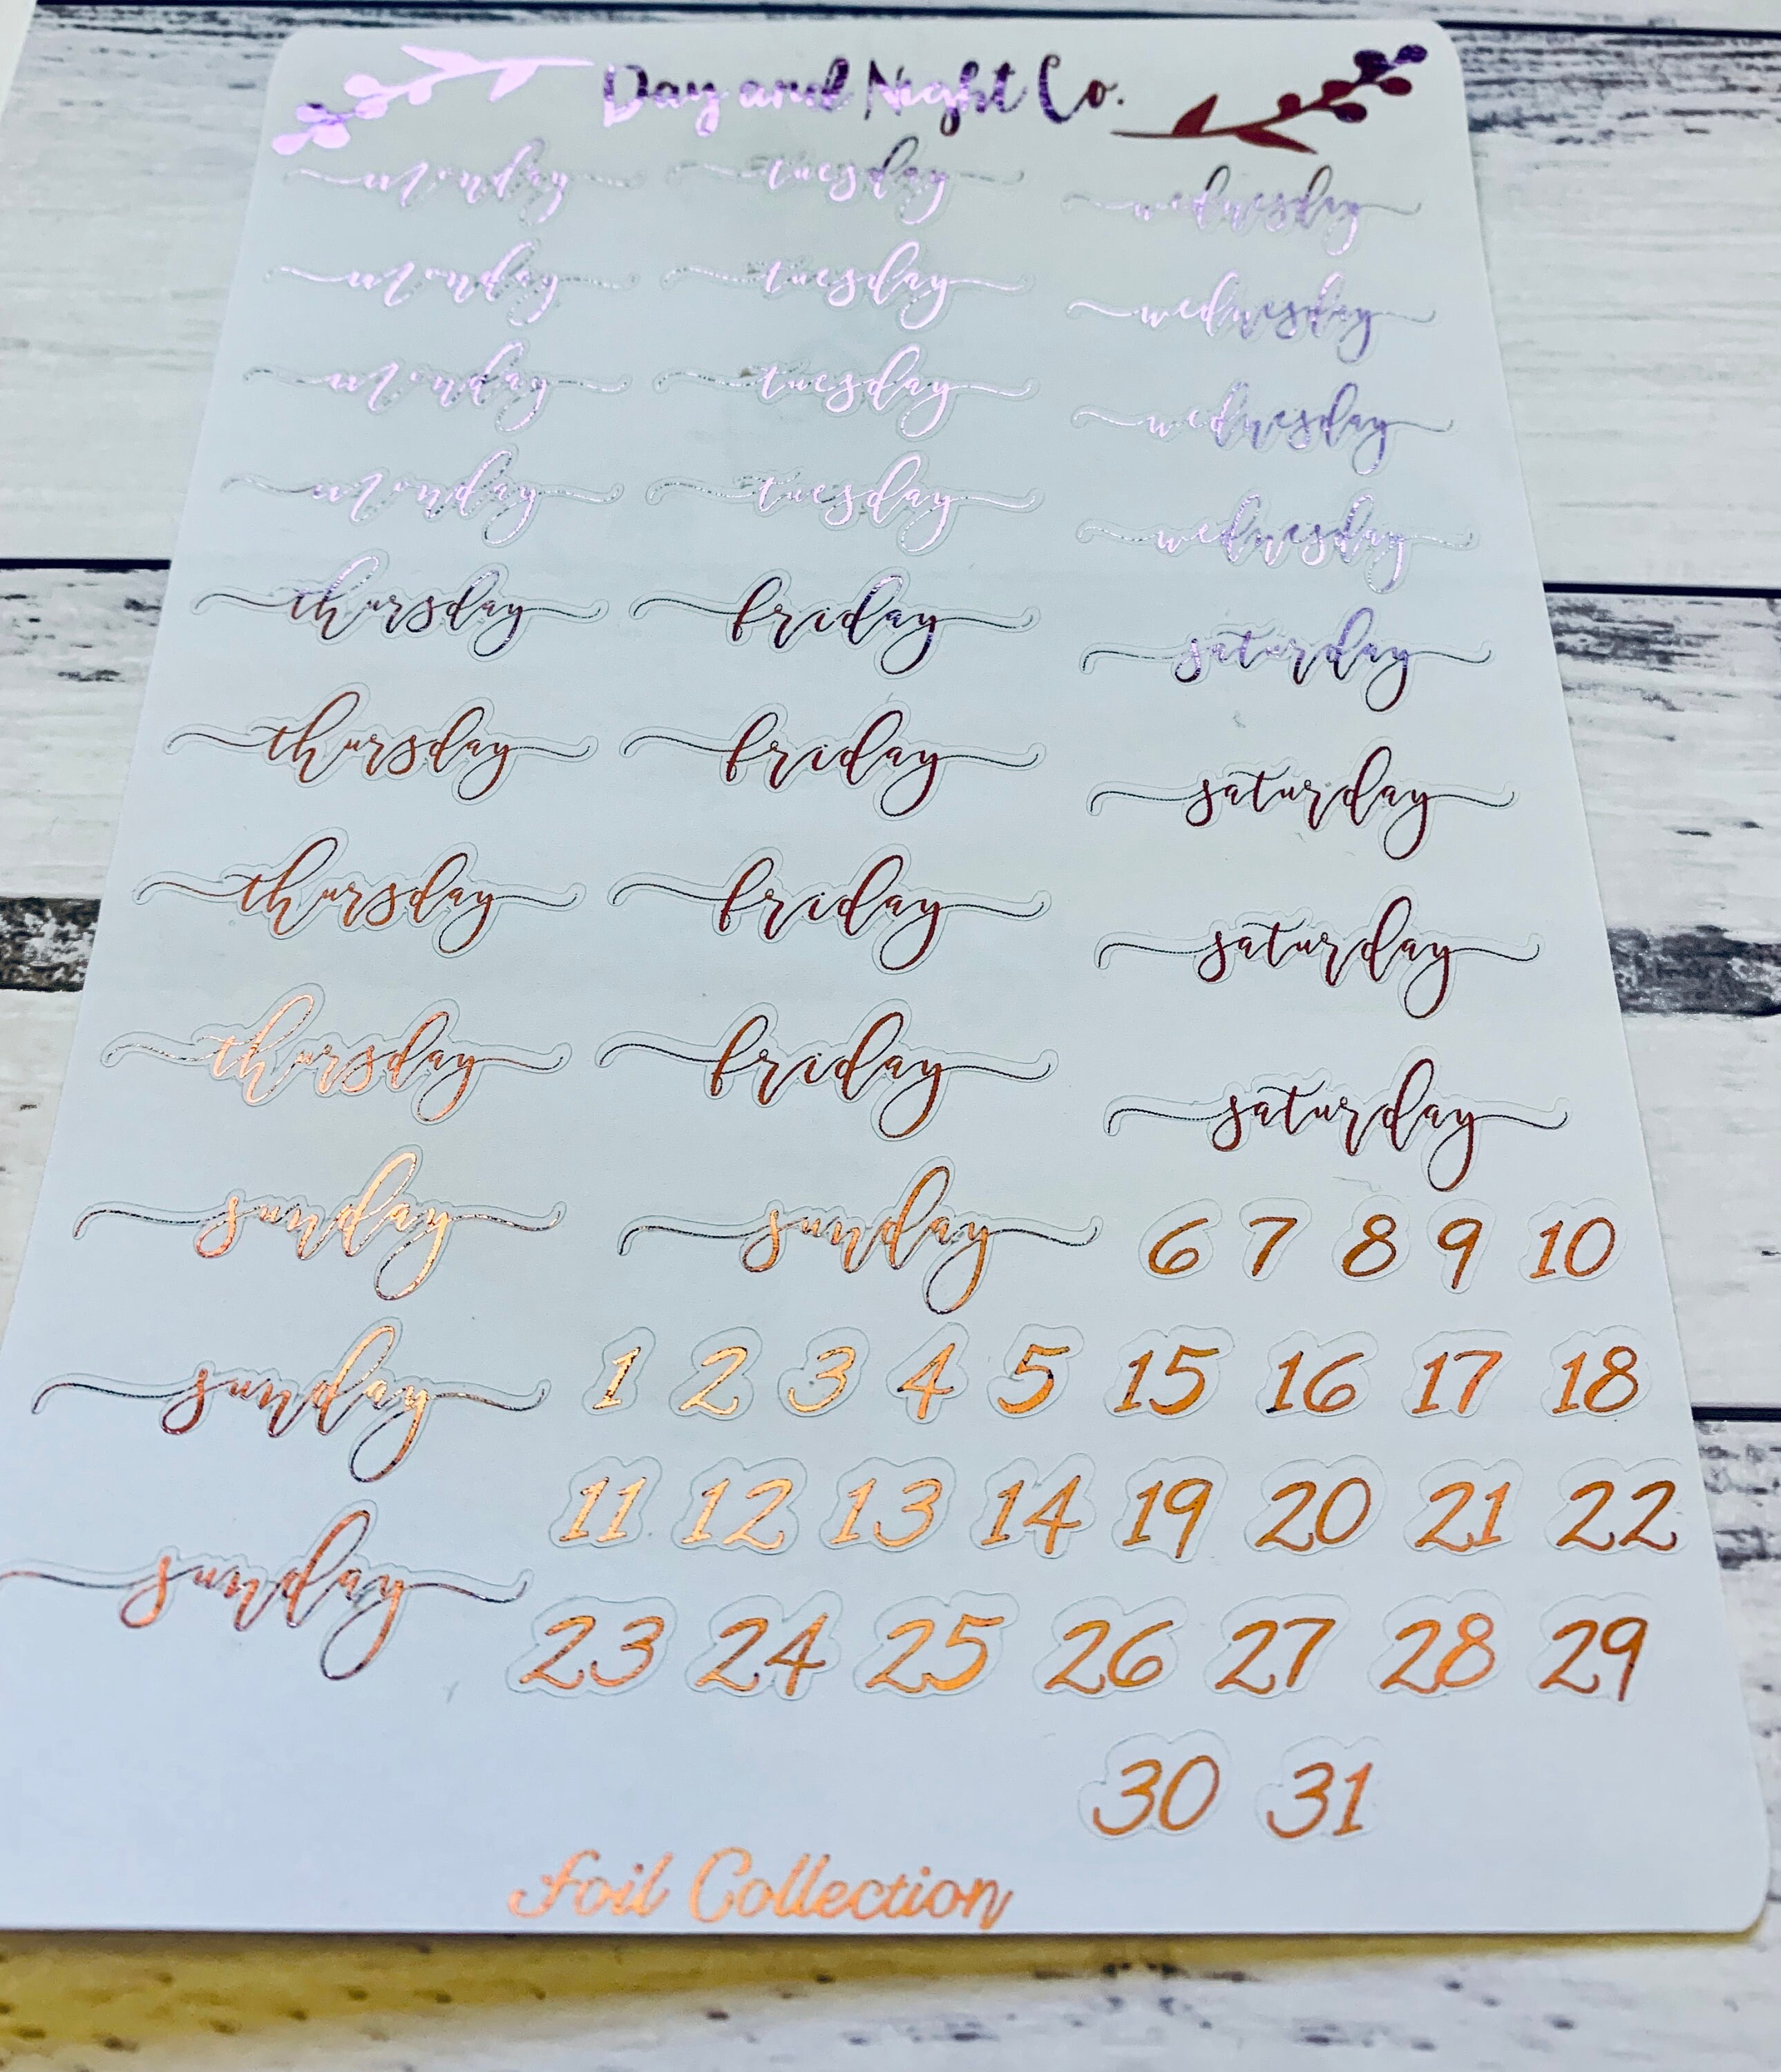 Day and Night Co.
monday tuesday wednesday
monday tuesday wednesday
monday tuesday wednesday
monday tuesday wednesday
thursday friday saturday
thursday friday saturday
thursday friday saturday
thursday friday saturday
sunday sunday 6 7 8 9 10
sunday 1 2 3 4 5 15 16 17 18
11 12 13 14 19 20 21 22
sunday 23 24 25 26 27 28 29
30 31
Foil Collection